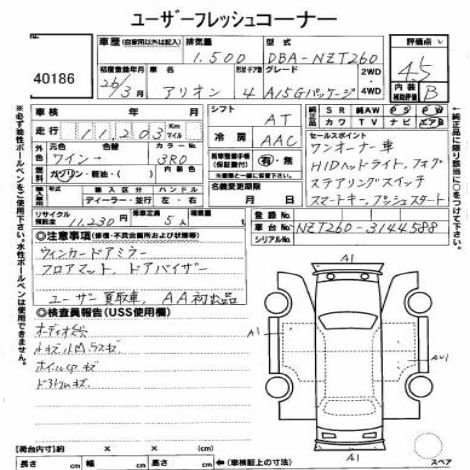 ユーザーフレッシュコーナー
40186
車歴 (自家用以外は記入) 排気量 1.500 型式 DBA-NZT260
評価点 4.5
初度登録年月 26/3月 車名 アリオン 形状 ドア 4 グレード A15Gパッケージ 2WD・4WD
内装補助評価 B
車検 年 月
シフト AT
純正品 SR 純AW PS PW
カワ TV ナビ エアB
走行 11,203 Km マイル
冷房 AAC
セールスポイント
ワンオーナー車
HIDヘッドライト、フォグ
ステアリングスイッチ
スマートキー、プッシュスタート
外色 元色 ワイン 色替 カラーNo. 3R0 内装色
ガソリン・軽油・( ) 有・無
輸入車 輸入区分 ハンドル
ディーラー・並行 左・右
名義変更期限 月 日
リサイクル預託金 11,230円 乗車定員 5人
登録No.
車台No. NZT260-3144588
シリアルNo.
◎注意事項 (修復・不具合箇所および状態等)
ウィンカードアミラー
フロアマット、ドアバイザー
ユーザー買取車、AA初出品
◎検査員報告 (USS使用欄)
A1
A1
A1
※必ず油性ボールペンをご使用下さい。水性ボールペンは使用できません。
←純正品に限り該当に○をつけて下さい。
(荷台内寸)約 × ×
長さ cm 幅 cm 高さ cm ←(車検証上の寸法)
スペア